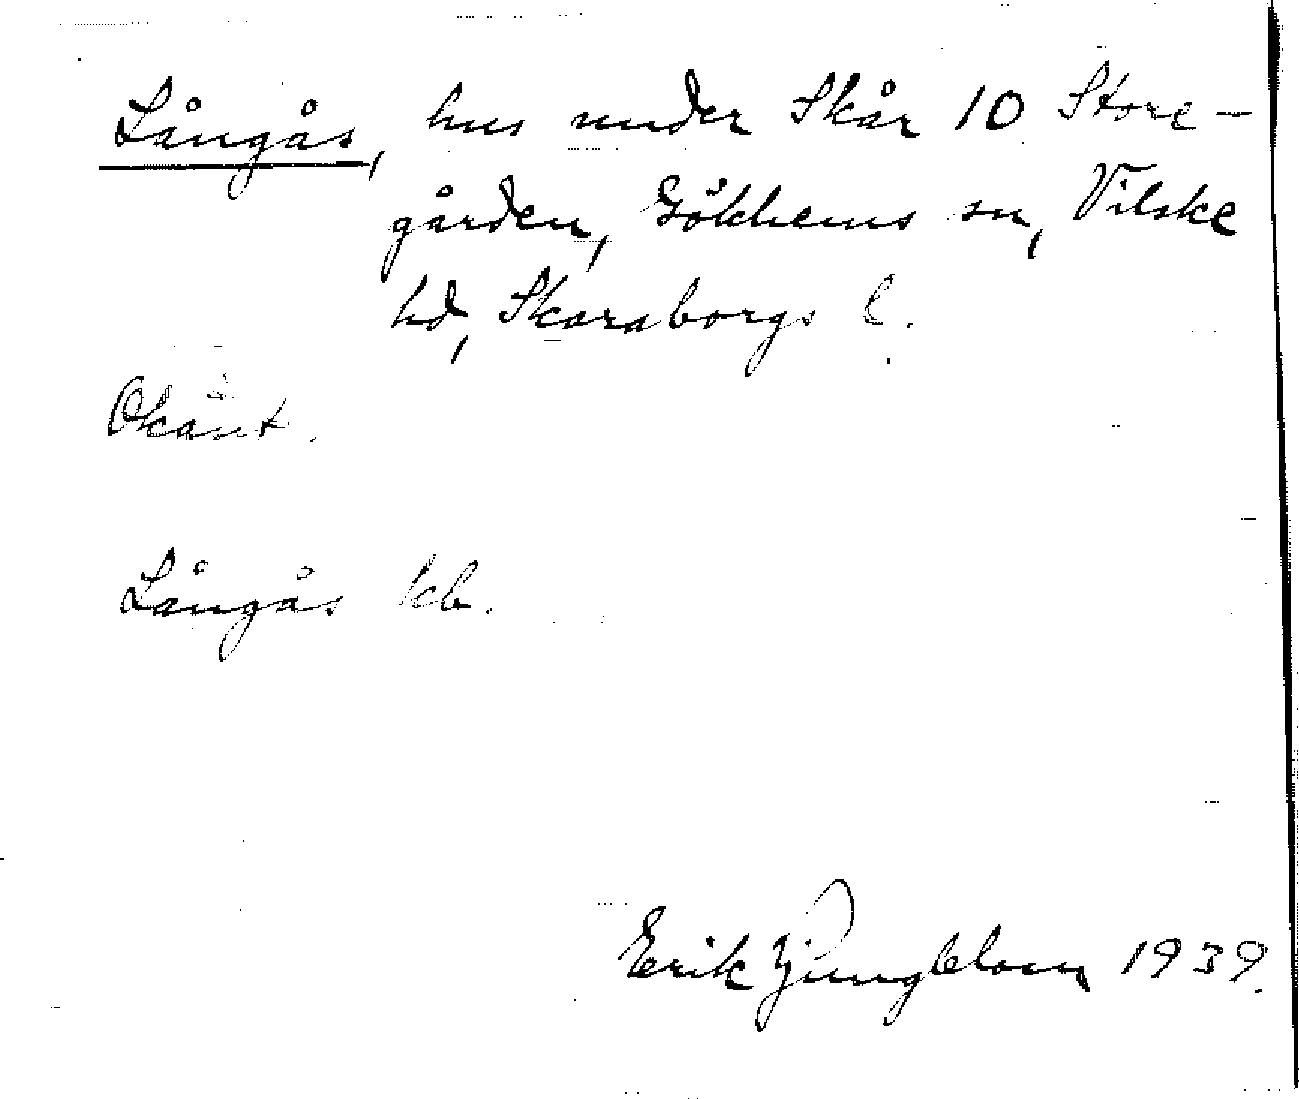 Långås, hus under Skår 10 Store-
gården, Gökhems sn, Vilske
hd, Skaraborgs l.
Okänt.
Långås kb.
Erik Ljungblom 1939.